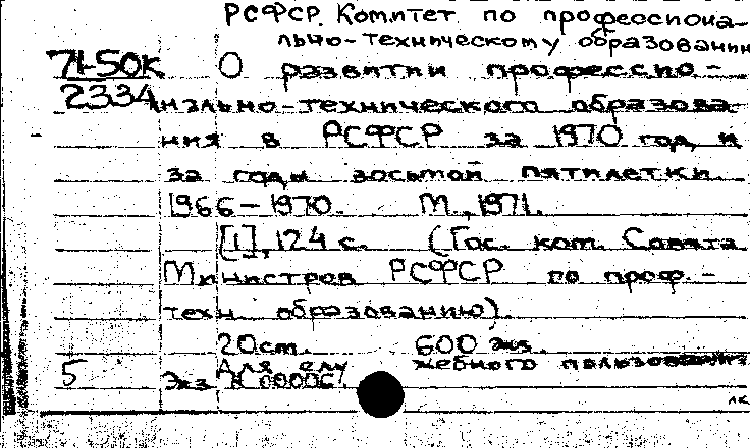 РСФСР. Комитет по профессиона-
льно-техническому образованию
71-50к О развитии профессио-
2334 нально-технического образова-
ния в РСФСР за 1970 год и
за годы восьмой пятилетки
1966-1970. М., 1971.
[1], 124 с. (Гос. ком. Совета
Министров РСФСР по проф.-
техн. образованию).
20см. 600 экз.
Для служебного пользования
5 Экз. N
лк